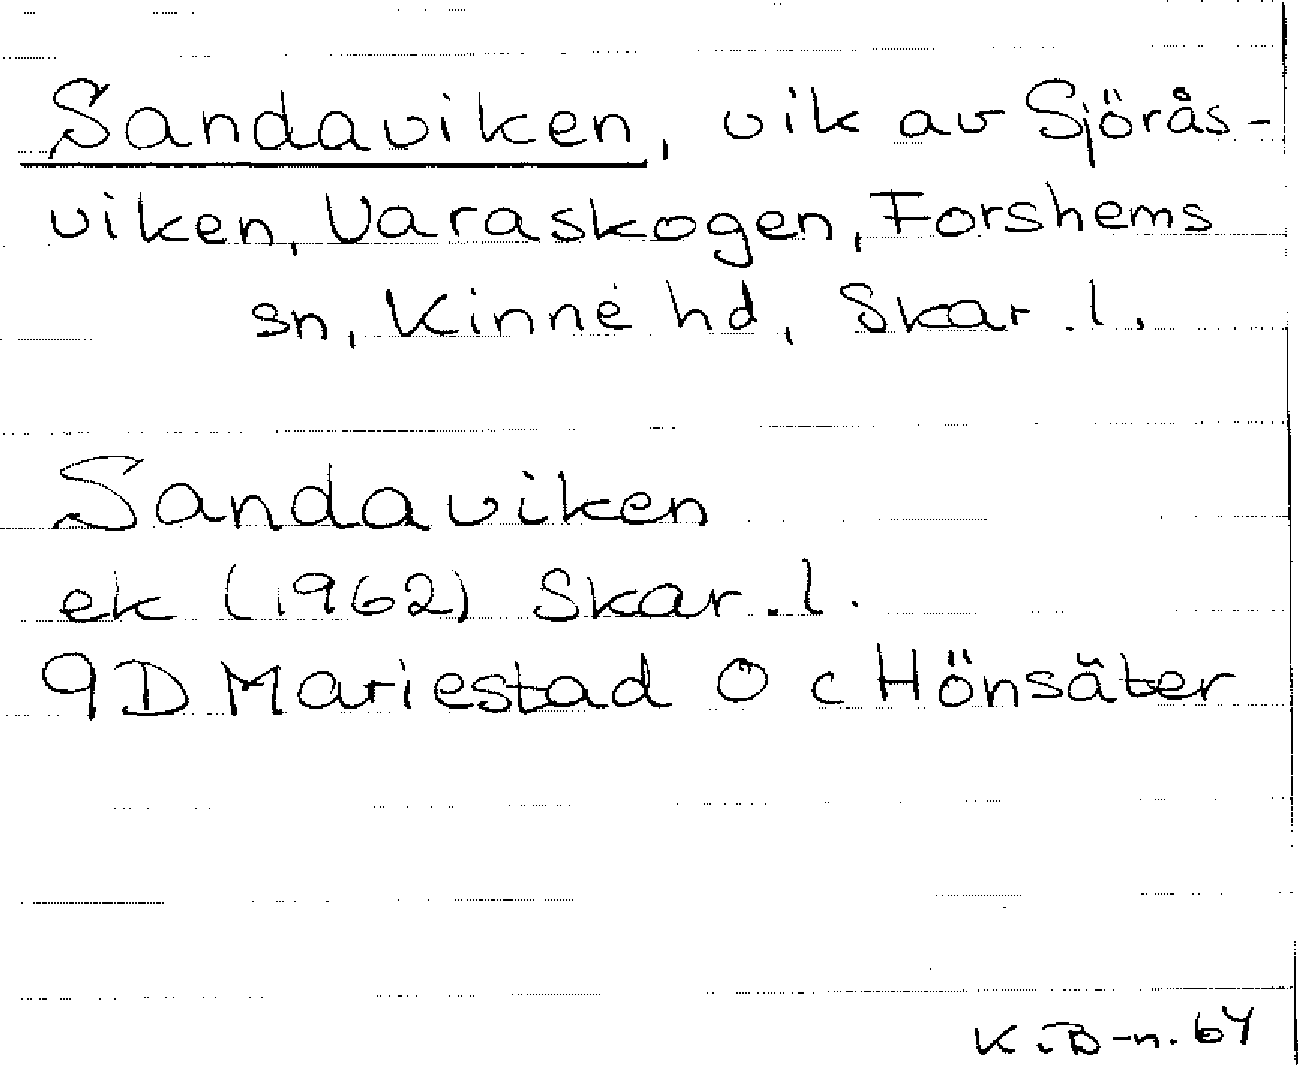 Sandaviken, vik av Sjörås-
viken, Varaskogen, Forshems
sn, Kinne hd, Skar. l.
Sandaviken
ek (1962) Skar. l.
9D Mariestad 0 c Hönsäter
K.B-n. 64